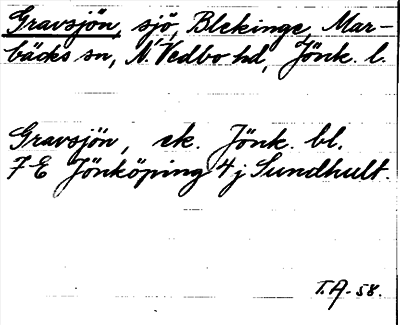 Gravsjön, sjö, Blekinge, Mar-
bäcks sn, N. Vedbo hd, Jönk. l.
Gravsjön, ek. Jönk. bl.
7 E Jönköping 4 j Sundhult.
T.A. 58.